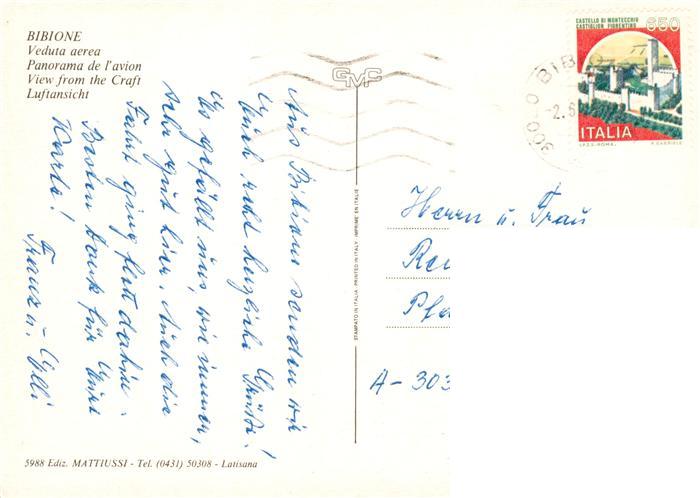 BIBIONE
Veduta aerea
Panorama de l'avion
View from the Craft
Luftansicht
GMC
CASTELLO DI MONTECCHIO
CASTIGLION FIORENTINO
650
ITALIA
I.P.Z.S.-ROMA-
30020 BIBIO
-2.
Aus Bibione senden wir
Euch recht herzliche Grüße!
Es gefällt uns, wie immer,
sehr gut hier. Auch die
Fahrt ging flott dahin.
Besten Dank für Eure
Karte!
Franz u.
Herrn u. Frau
A-303
STAMPATO IN ITALIA - PRINTED IN ITALY - IMPRIME EN ITALIE
5988 Ediz. MATTIUSSI - Tel. (0431) 50308 - Latisana